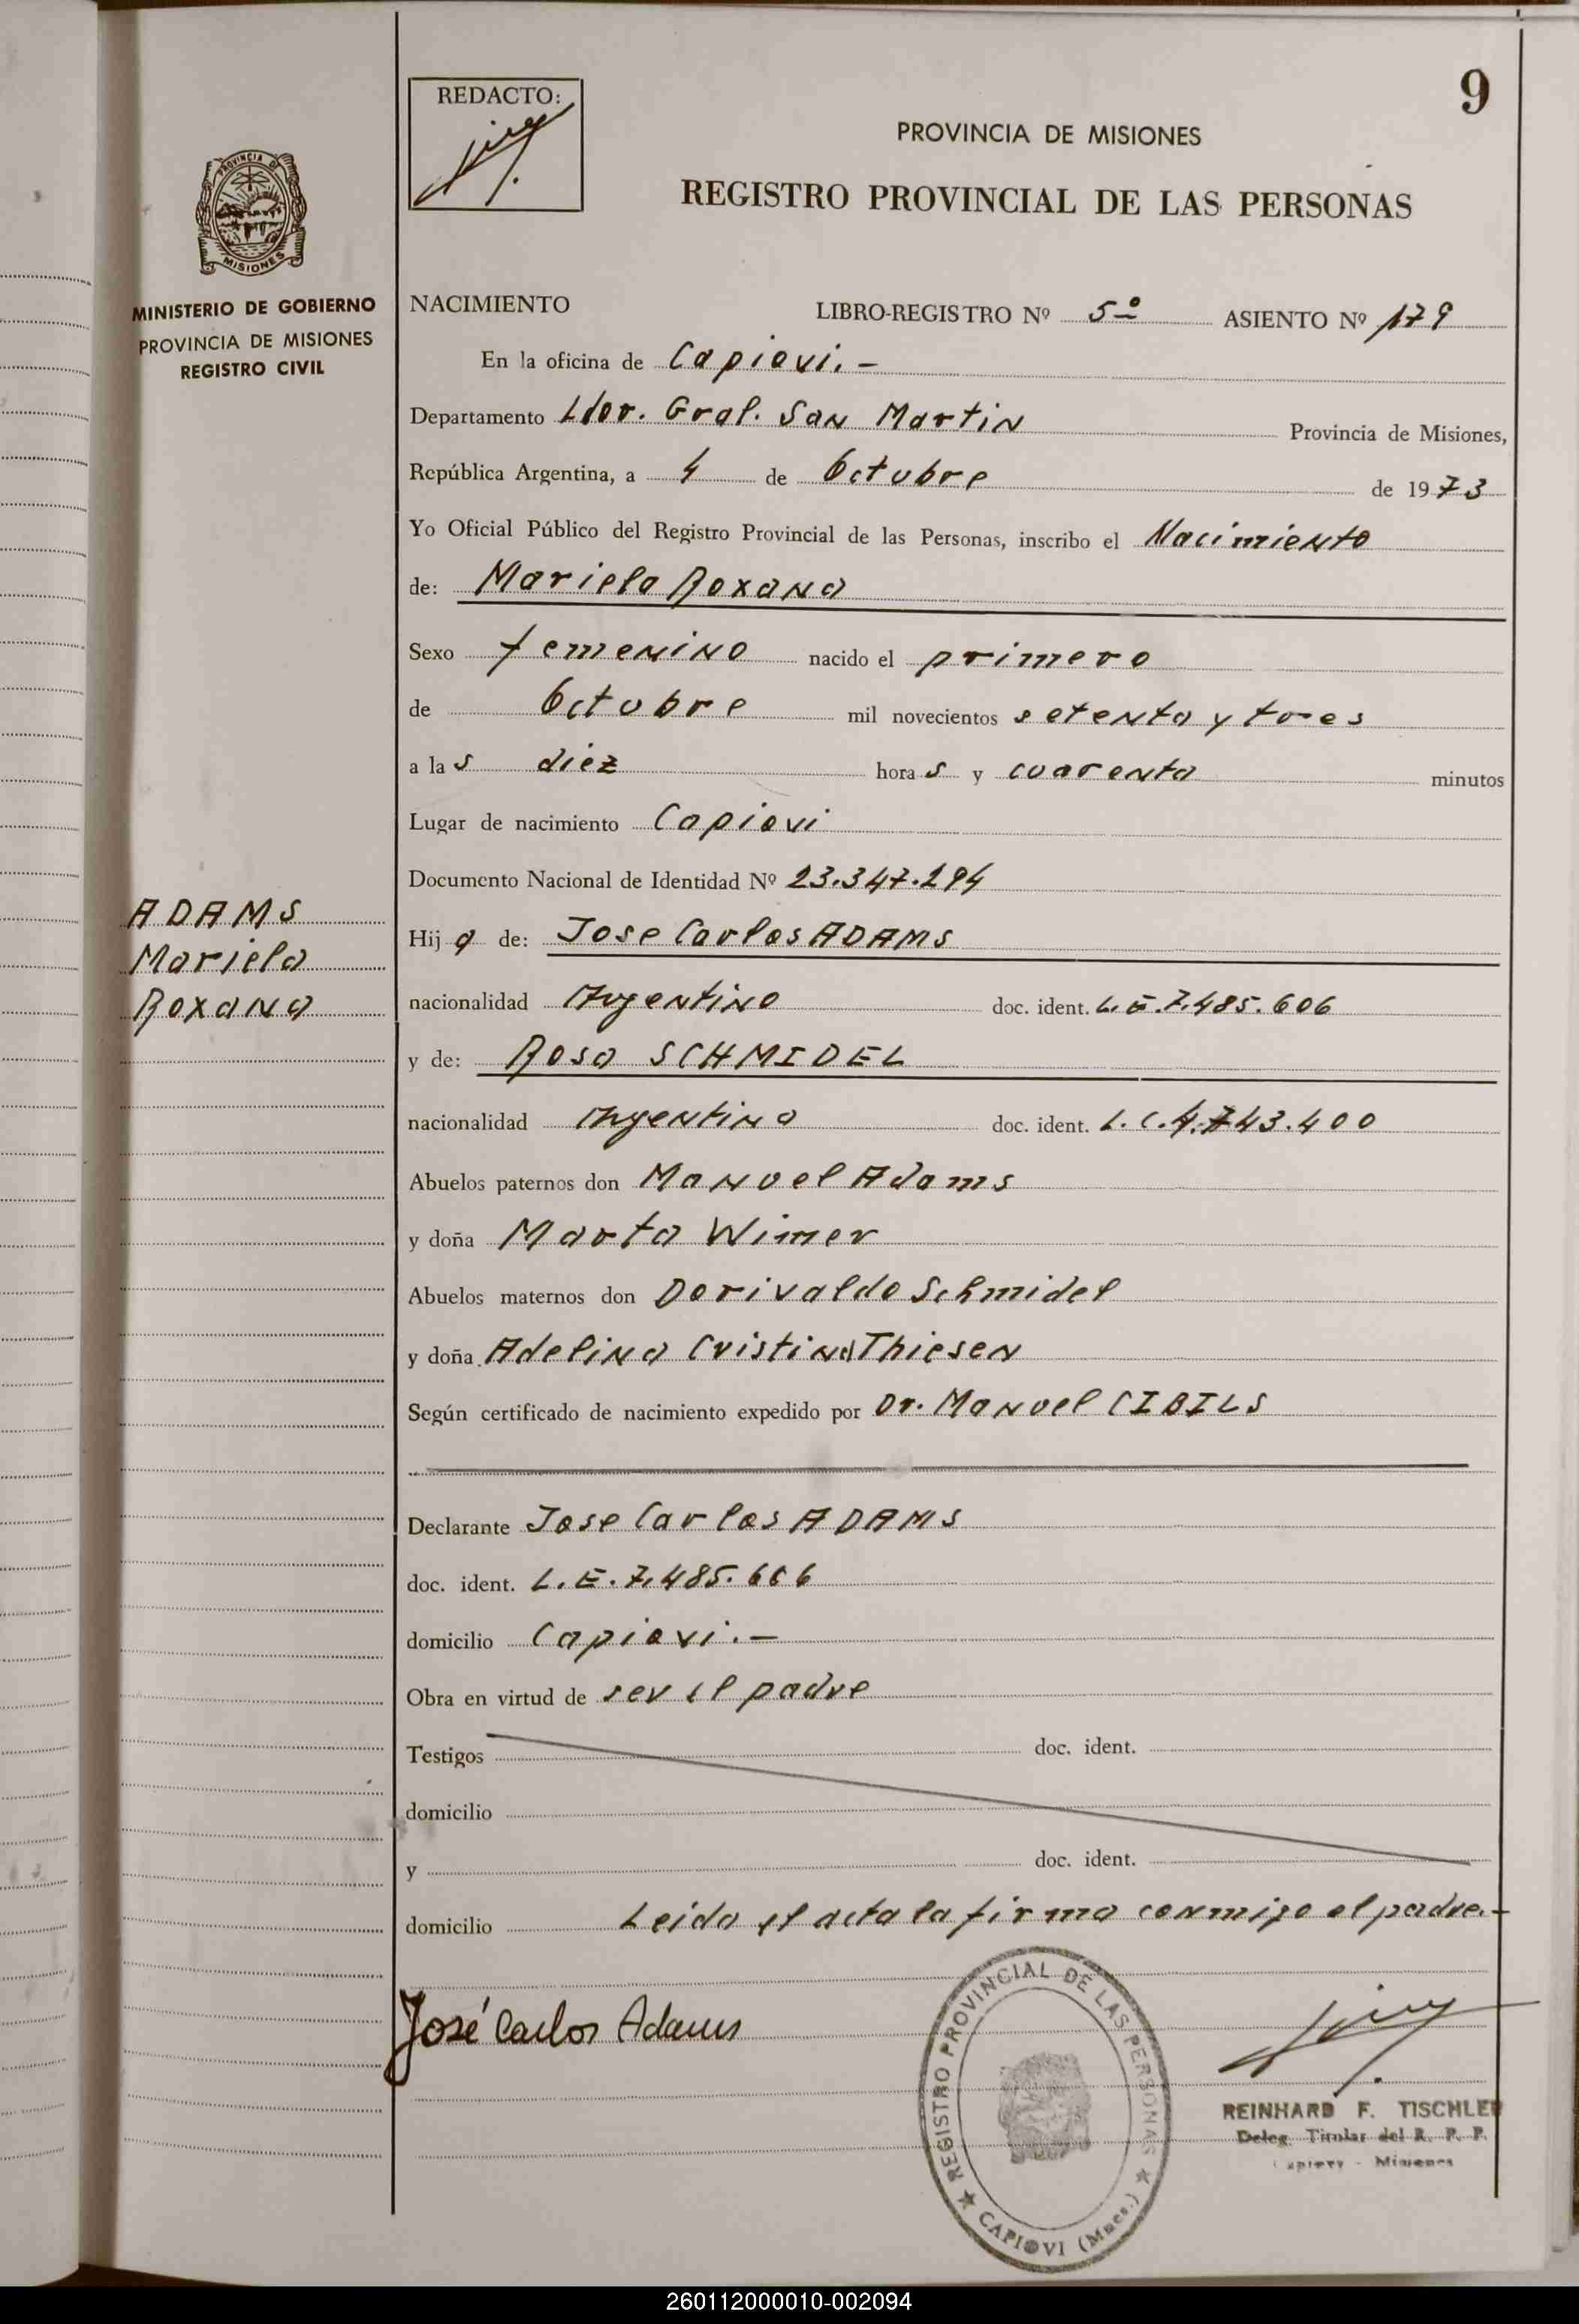 9
REDACTO:
PROVINCIA DE MISIONES
REGISTRO PROVINCIAL DE LAS PERSONAS
PROVINCIA DE
MISIONES
MINISTERIO DE GOBIERNO
PROVINCIA DE MISIONES
REGISTRO CIVIL
NACIMIENTO LIBRO-REGISTRO Nº 5º ASIENTO Nº 179
En la oficina de Capiovi.-
Departamento Ldor. Gral. San Martin Provincia de Misiones,
República Argentina, a 4 de Octubre de 1973
Yo Oficial Público del Registro Provincial de las Personas, inscribo el Nacimiento
de: Mariela Roxana
Sexo femenino nacido el primero
de Octubre mil novecientos setenta y tres
a las diez horas y cuarenta minutos
Lugar de nacimiento Capiovi
Documento Nacional de Identidad Nº 23.347.294
ADAMS
Mariela
Roxana
Hija de: Jose Carlos ADAMS
nacionalidad Argentino doc. ident. L.E.7.485.606
y de: Rosa SCHMIDEL
nacionalidad Argentina doc. ident. L.C.4.743.400
Abuelos paternos don Manuel Adams
y doña Marta Wimer
Abuelos maternos don Dorivaldo Schmidel
y doña Adelina Cristina Thiesen
Según certificado de nacimiento expedido por Dr. Manuel CIBILS
Declarante Jose Carlos ADAMS
doc. ident. L.E.7.485.666
domicilio Capiovi.-
Obra en virtud de ser el padre
Testigos doc. ident.
domicilio
y doc. ident.
domicilio Leida el acta la firma conmigo el padre.-
José Carlos Adams
REGISTRO PROVINCIAL DE LAS PERSONAS
CAPIOVI (Mnes.)
REINHARD F. TISCHLER
Deleg. Titular del R. P. P.
Capiovi - Misiones
260112000010-002094